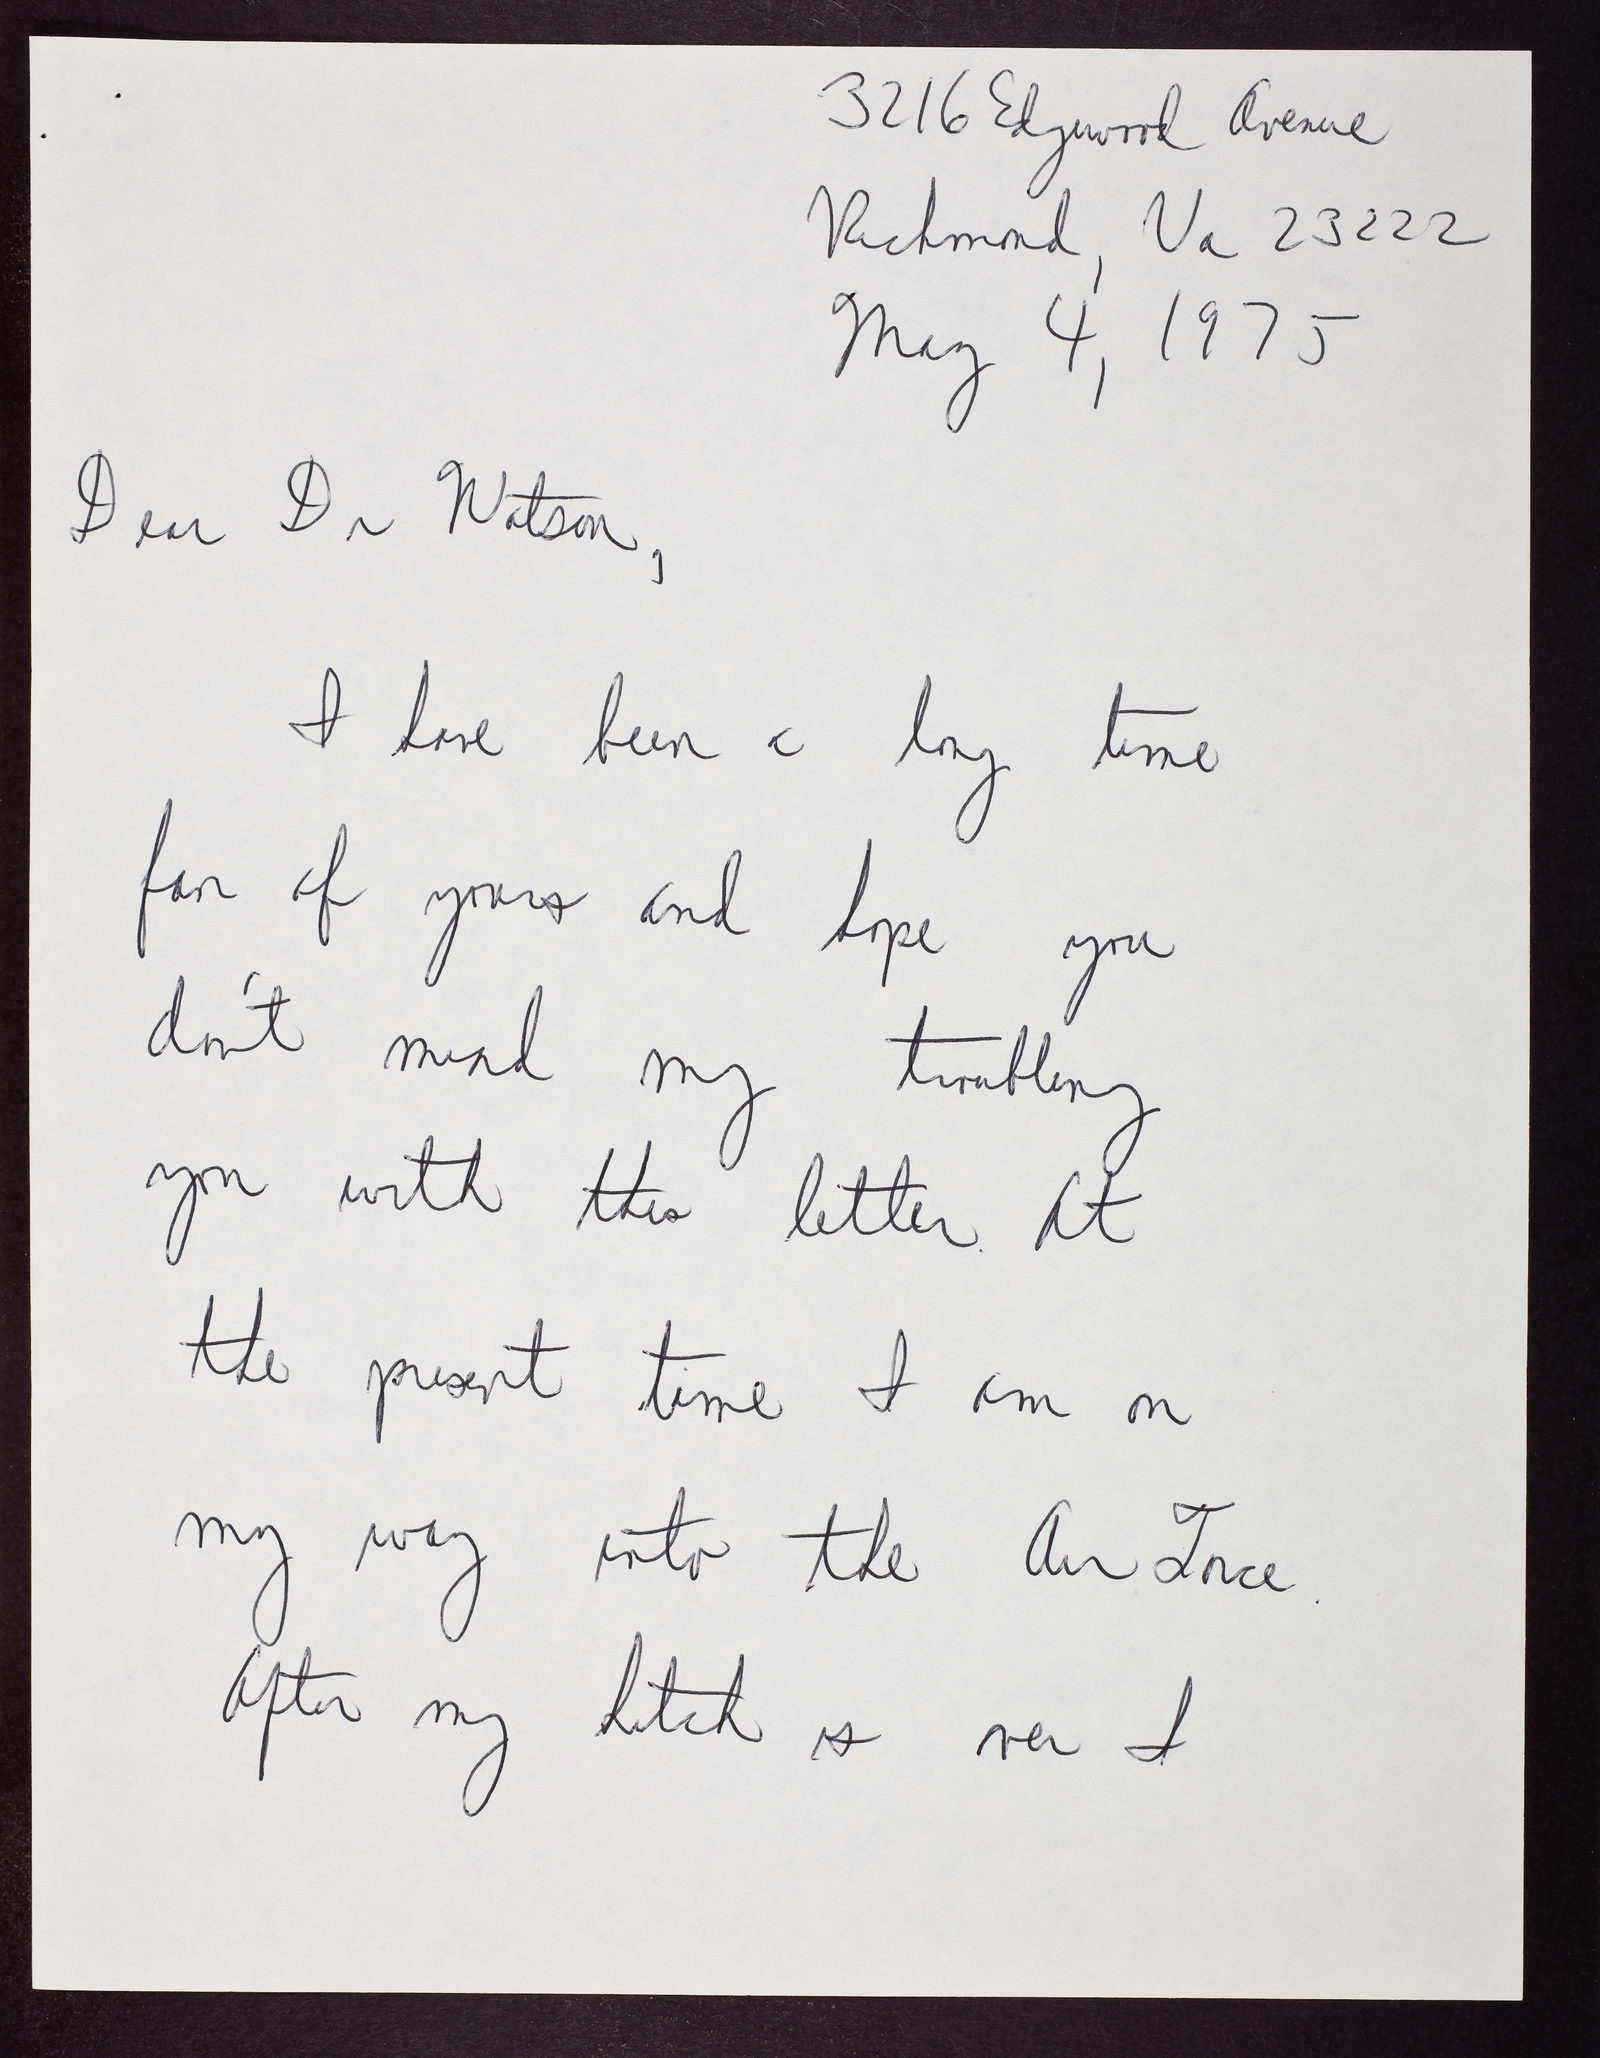 3216 Edgewood Avenue
Richmond, Va 23222
May 4, 1975
Dear Dr Watson,
I have been a long time
fan of yours and hope you
don't mind my troubling
you with this letter. At
the present time I am on
my way into the Air Force.
After my hitch is over I